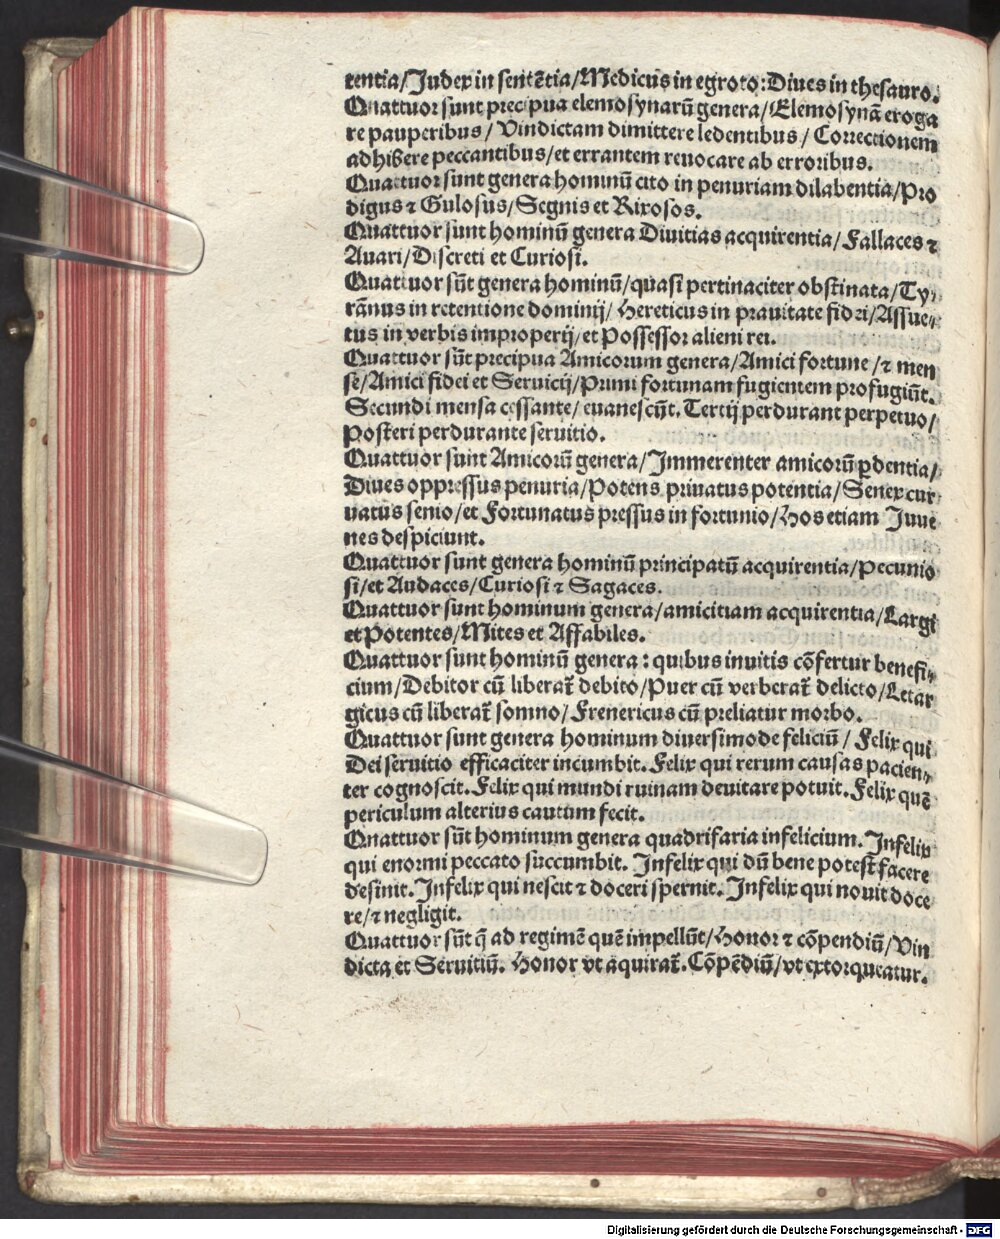 tentia/Judex in sentētia/Medicus in egroto:Diues in thesauro.
Quattuor sunt precipua elemosynarū genera/Elemosynā eroga
re pauperibus/Vindictam dimittere ledentibus/Correctionem
adhibere peccantibus/et errantem reuocare ab erroribus.
Quattuor sunt genera hominū cito in penuriam dilabentia/Pro
digus ⁊ Gulosus/Segnis et Rixosos.
Quattuor sunt hominū genera Diuitias acquirentia/Fallaces ⁊
Auari/Discreti et Curiosi.
Quattuor sūt genera hominū/quasi pertinaciter obstinata/Ty,
rānus in retentione dominij/Hereticus in prauitate fidei/Assue,
tus in verbis improperij/et Possessor alieni rei.
Quattuor sūt precipua Amicorum genera/Amici fortune/⁊ men
se/Amici fidei et Seruicij/Primi fortunam fugientem profugiūt.
Secundi mensa cessante/euanescūt.Tertij perdurant perpetuo/
Posteri perdurante seruitio.
Quattuor sunt Amicorū genera/Immerenter amicorū ꝑdentia/
Diues oppressus penuria/Potens priuatus potentia/Senex cur
uatus senio/et Fortunatus pressus in fortunio/Hos etiam Juue
nes despiciunt.
Quattuor sunt genera hominū principatū acquirentia/Pecunio
si/et Audaces/Curiosi ⁊ Sagaces.
Quattuor sunt hominum genera/amicitiam acquirentia/Largi
et Potentes/Mites et Affabiles.
Quattuor sunt hominū genera:quibus inuitis cōfertur benefi,
cium/Debitor cū liberat̄ debito/Puer cū verberat̄ delicto/Letar
gicus cū liberat̄ somno/Frenericus cū preliatur morbo.
Quattuor sunt genera hominum diuersimode feliciū/Felix qui
Dei seruitio efficaciter incumbit.Felix qui rerum causas pacien,
ter cognoscit.Felix qui mundi ruinam deuitare potuit.Felix quē
periculum alterius cautum fecit.
Qnattuor sūt hominum genera quadrifaria infelicium.Infelix
qui enormi peccato succumbit.Infelix qui dū bene potest facere
desinit.Infelix qui nescit ⁊ doceri spernit.Infelix qui nouit doce
re/⁊ negligit.
Quattuor sūt q̄ ad regimē quē impellūt/Honor ⁊ cōpendiū/Vin
dicta et Seruitiū.Honor vt aquirat̄.Cōpēdiū/vt extorqueatur.
Digitalisierung gefördert durch die Deutsche Forschungsgemeinschaft - DFG